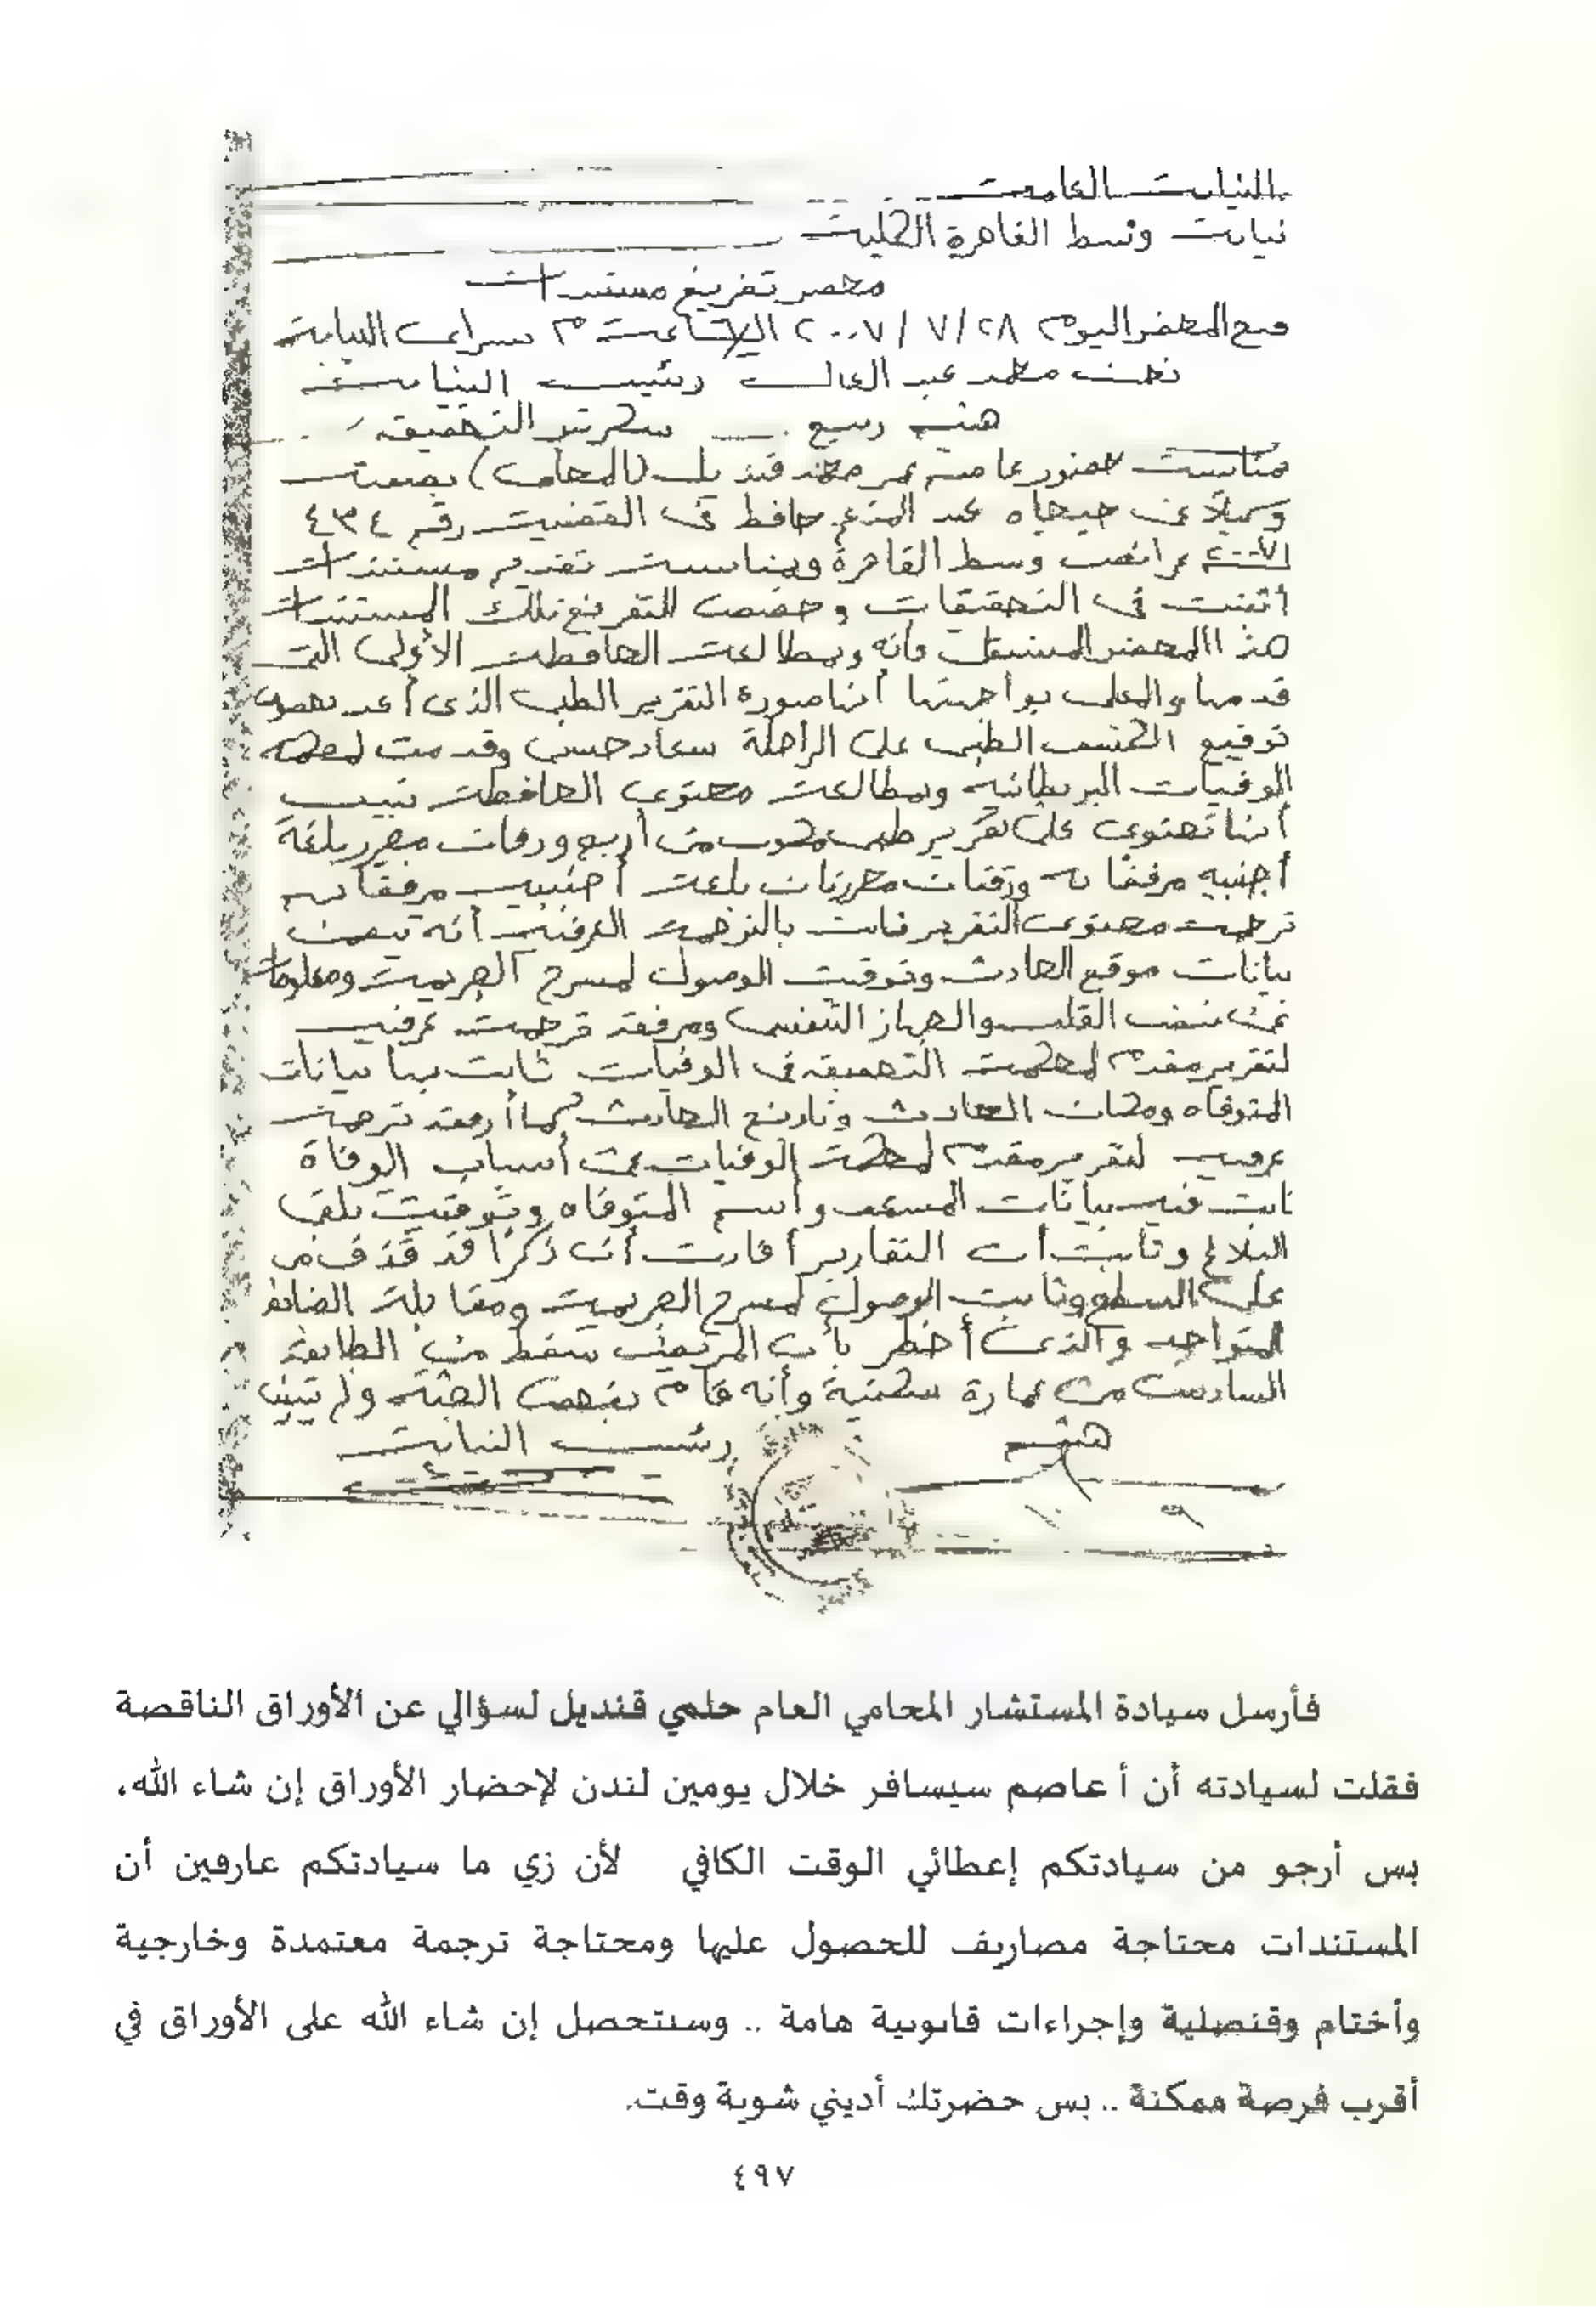 النيابة العامة
نيابة وسط القاهرة الكلية
محضر تفريغ مستندات
فتح المحضر اليوم ٢٨/ ٧/ ٢٠٠٧ الساعة م سراى النيابة
نحن محمد عبد العال رئيس النيابة
هيثم ربيع سكرتير التحقيق
بمناسبة حضور عاصم محمد قنديل (المحامى) بصفته
وكيلاً عن جنجاه عبد المنعم حافظ فى القضية رقم ٤٣٤
عرائض وسط القاهرة وبمناسبة تقديم مستندات
أثبتت فى التحقيقات وخصص للتفريغ تلك المستندات
هذا المحضر المستقل وأنه وبمطالعة الحافظة الأولى التى
قدمها بواجهتها أنها صورة التقرير الطبى الذى أعد بخصوص
توقيع الكشف الطبى على الراحلة سعاد حسنى وقدمت لمحكمة
الوفيات البريطانية وبمطالعة محتوى الحافظة تبين
أنها تحتوى على تقرير طبى مكون من أربع ورقات محرر بلغة
أجنبية مرفقا به ورقتان محررتان بلغة أجنبية مرفقا بهم
ترجمة محتوى التقرير بالترجمة العرفية أنه تضمن
بيانات موقع الحادث وتوقيت الوصول لمسرح الجريمة ومعلومات
عن نبض القلب والجهاز التنفسى ومرفقه ترجمة عرفية
لتقرير مقدم لمحكمة التحقيق فى الوفيات ثابت بها بيانات
المتوفاه ومكان الحادث وتاريخ الحادث كما أرفقه ترجمة
عرفية لتقرير مقدم لمحكمة الوفيات عن أسباب الوفاة
ثابت فيه بيانات المسعف واسم المتوفاه وتوقيت تلقى
البلاغ وثابت أن التقارير أفادت أن ذكرًا قد قذف من
على السطح وثابت الوصول لمسرح الجريمة ومقابلة الضابط
المتواجد والذى أخطر بأن المريض سقط من الطابق
السادس من عمارة سكنية وأنه قام بفحص الجثة ولم تبين
هيثم رئيس النيابة
فأرسل سيادة المستشار المحامي العام حلمي قنديل لسؤالي عن الأوراق الناقصة
فقلت لسيادته أن أ عاصم سيسافر خلال يومين لندن لإحضار الأوراق إن شاء الله،
بس أرجو من سيادتكم إعطائي الوقت الكافي لأن زي ما سيادتكم عارفين أن
المستندات محتاجة مصاريف للحصول عليها ومحتاجة ترجمة معتمدة وخارجية
وأختام وقنصلية وإجراءات قانونية هامة .. وسنتحصل إن شاء الله على الأوراق في
أقرب فرصة ممكنة .. بس حضرتك أديني شوية وقت.
٤٩٧